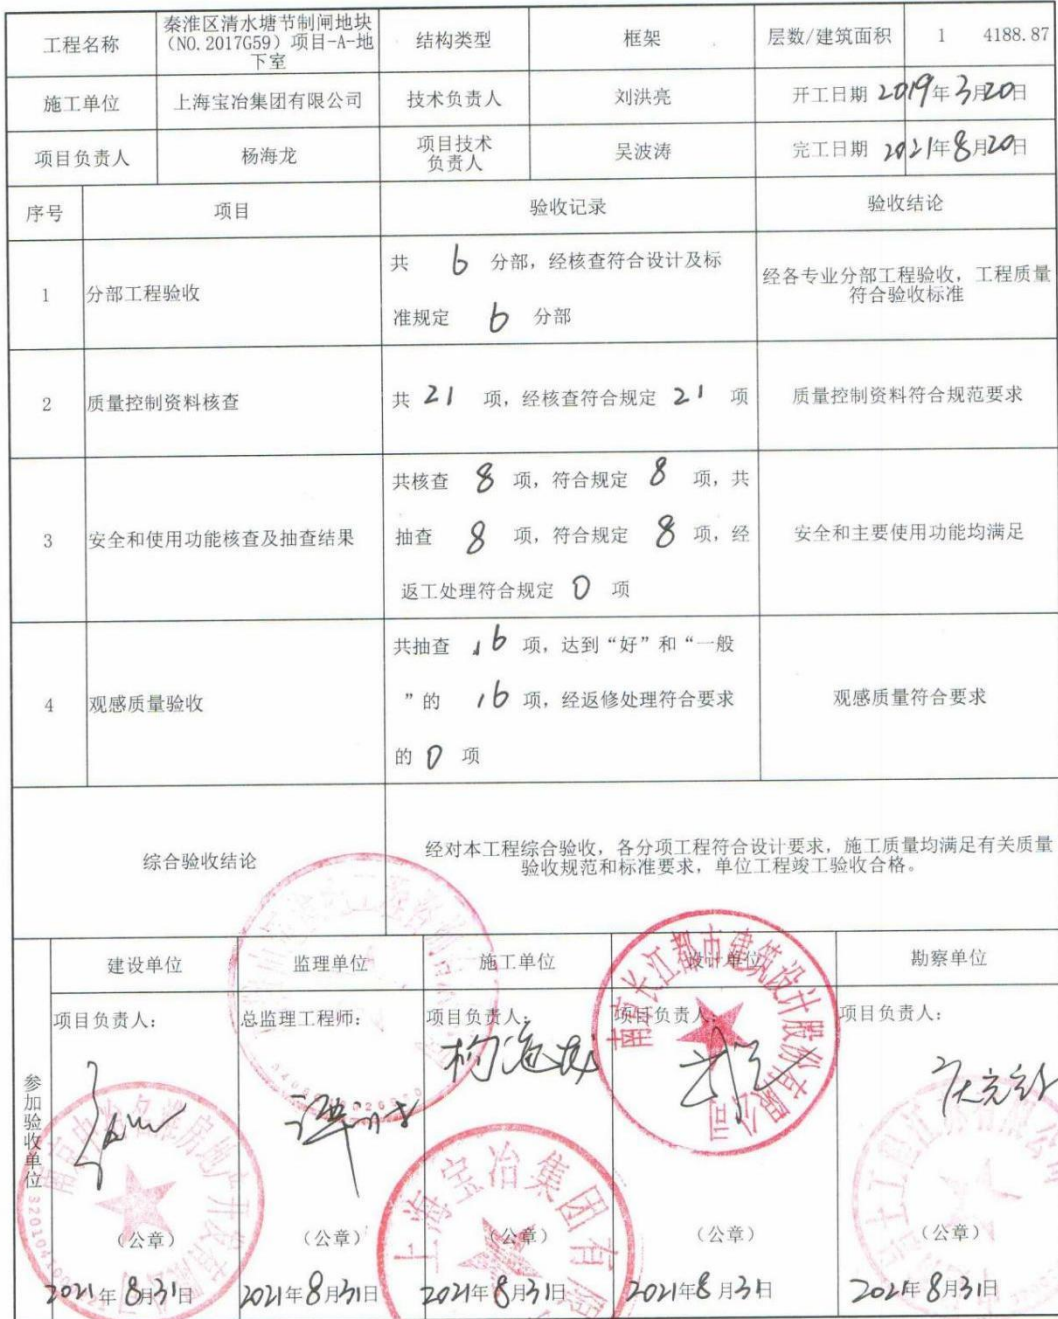 工程名称
秦淮区清水塘节制闸地块
(NO.2017G59)项目-A-地
下室
结构类型
框架
层数/建筑面积
1 4188.87
施工单位
上海宝冶集团有限公司
技术负责人
刘洪亮
开工日期 2019年3月20日
项目负责人
杨海龙
项目技术
负责人
吴波涛
完工日期 2021年8月20日
序号
项目
验收记录
验收结论
1
分部工程验收
共 6 分部，经核查符合设计及标
准规定 6 分部
经各专业分部工程验收，工程质量
符合验收标准
2
质量控制资料核查
共 21 项，经核查符合规定 21 项
质量控制资料符合规范要求
3
安全和使用功能核查及抽查结果
共核查 8 项，符合规定 8 项，共
抽查 8 项，符合规定 8 项，经
返工处理符合规定 0 项
安全和主要使用功能均满足
4
观感质量验收
共抽查 16 项，达到“好”和“一般
”的 16 项，经返修处理符合要求
的 0 项
观感质量符合要求
综合验收结论
经对本工程综合验收，各分项工程符合设计要求，施工质量均满足有关质量
验收规范和标准要求，单位工程竣工验收合格。
参加验收单位
建设单位
监理单位
施工单位
设计单位
勘察单位
项目负责人：
总监理工程师：
项目负责人：
项目负责人：
项目负责人：
杨海龙
南京长江都市建筑设计股份有限公司
上海宝冶集团有限
（公章）
（公章）
（公章）
（公章）
（公章）
2021年8月31日
2021年8月31日
2021年8月31日
2021年8月31日
2021年8月31日